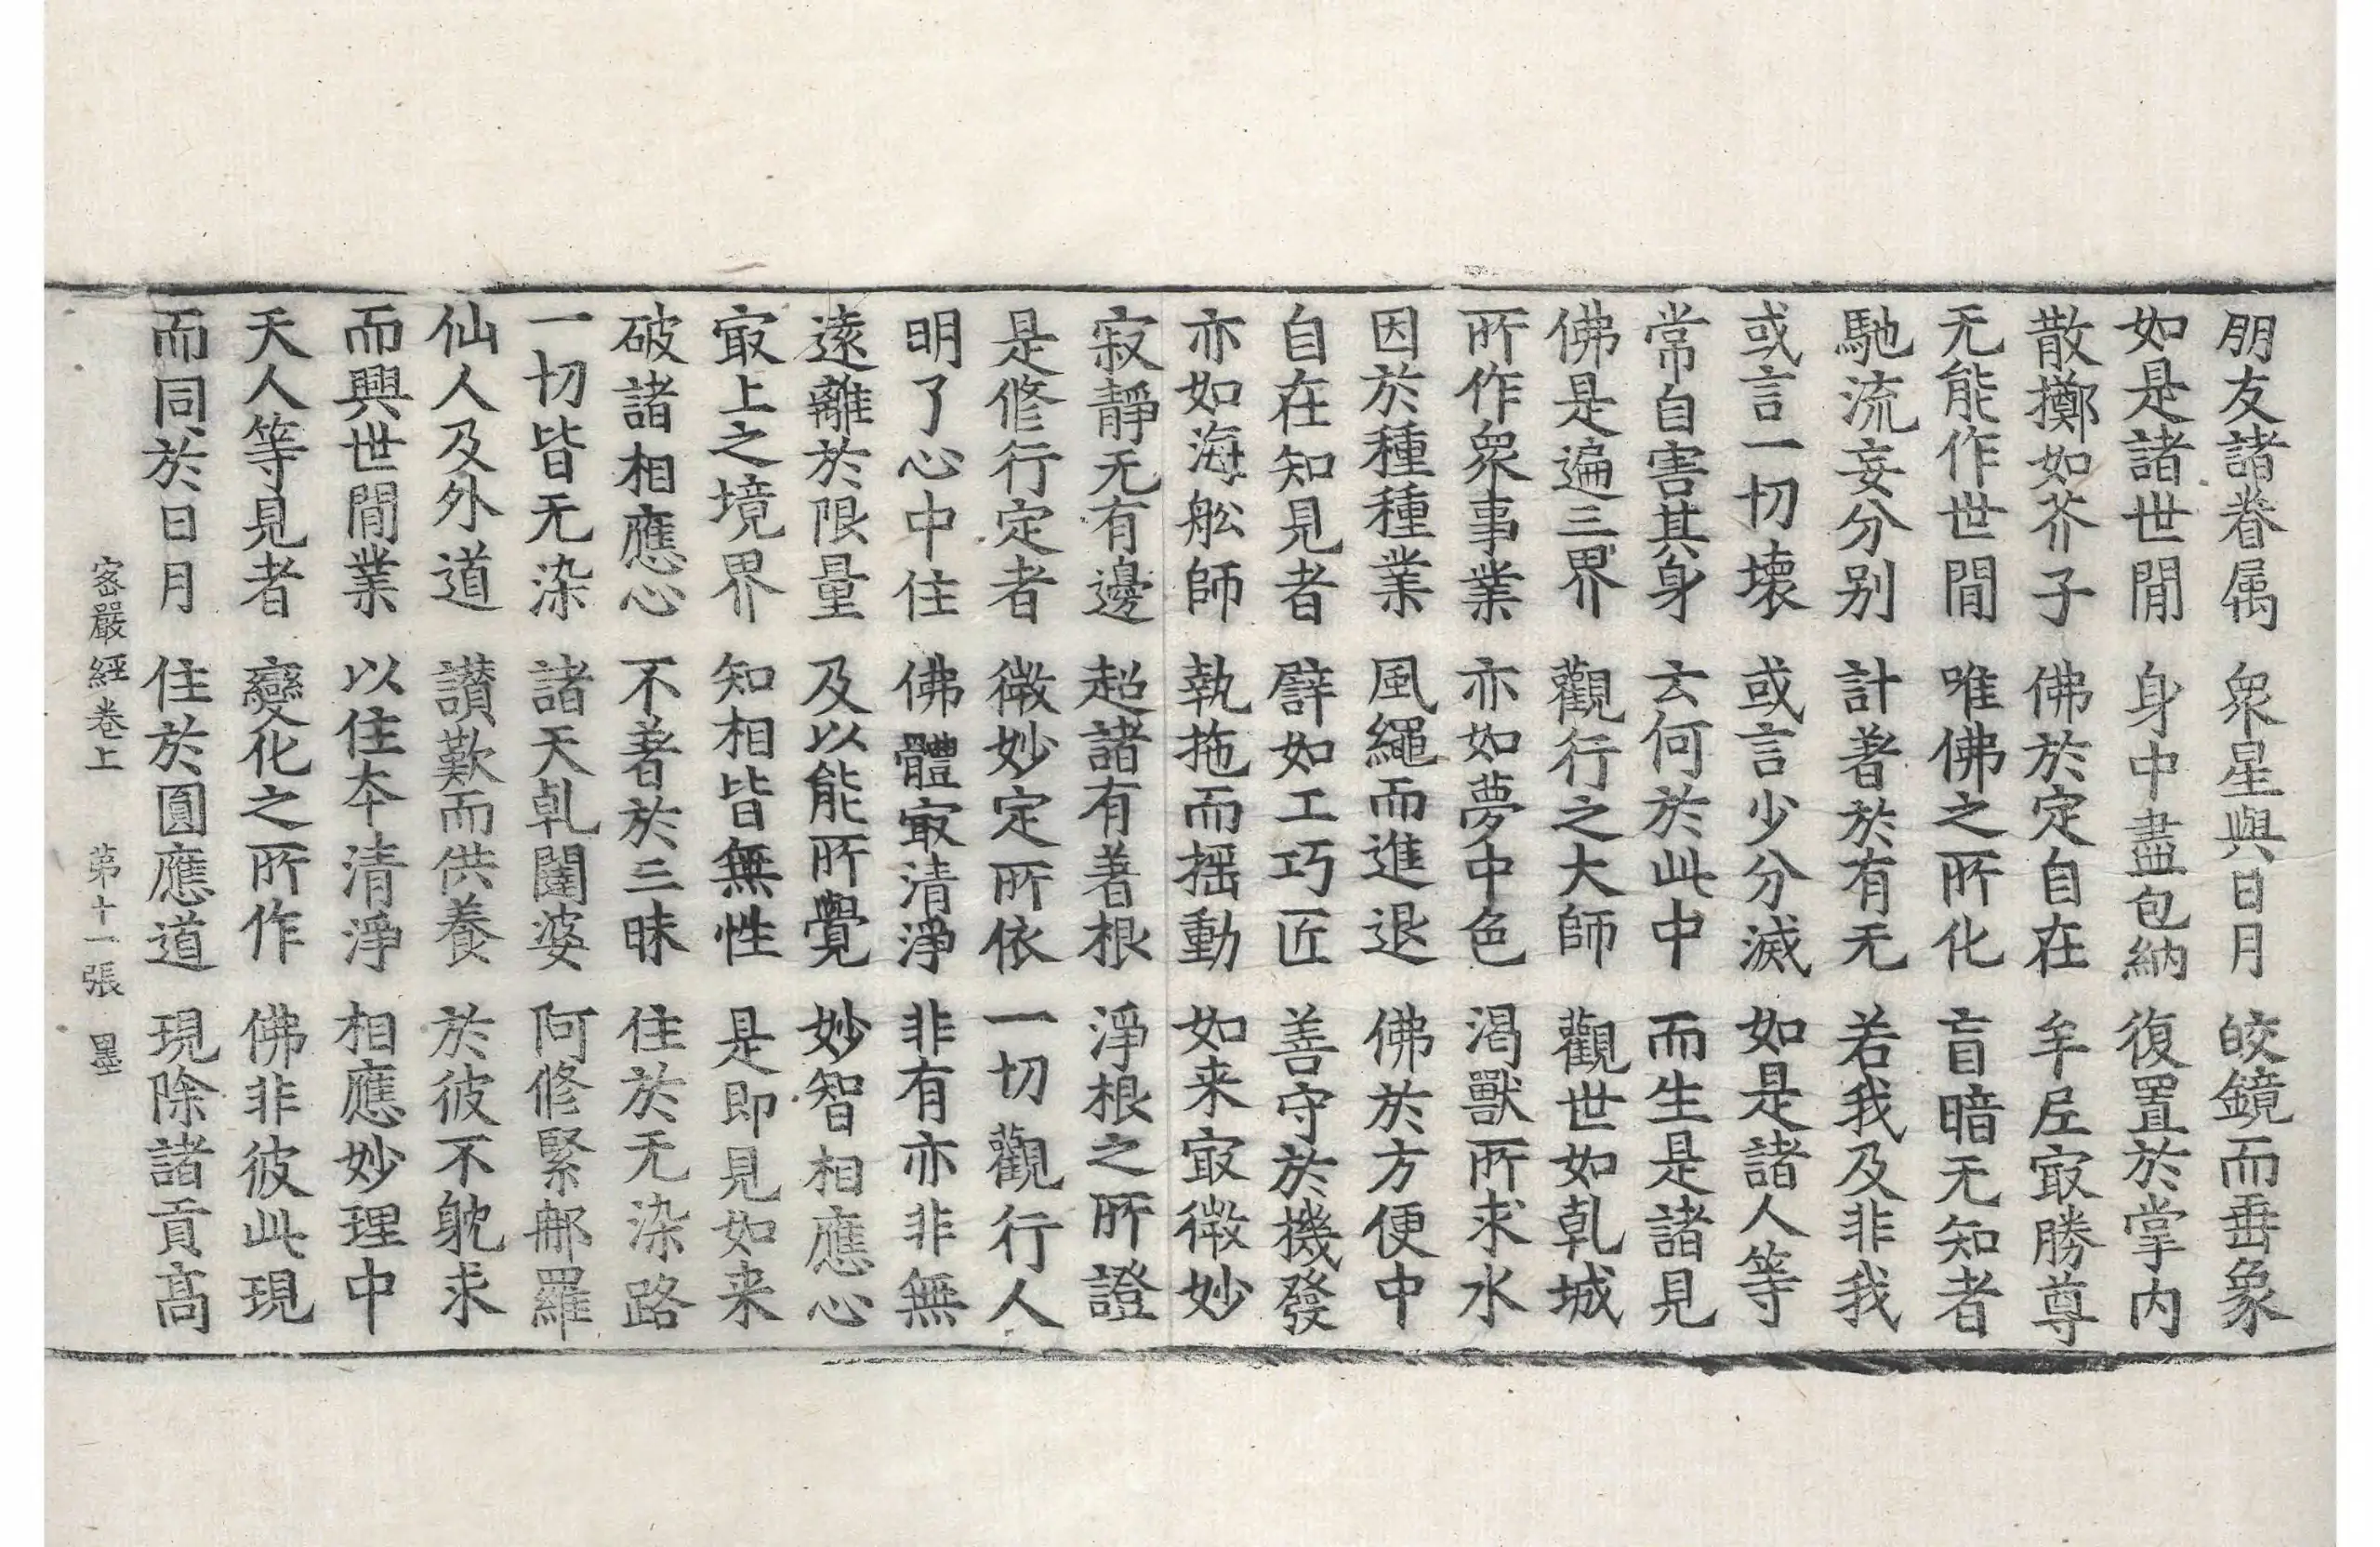 朋友諸眷属　衆星與日月　皎鏡而垂象
如是諸世間　身中盡包納　復置於掌内
散擲如芥子　佛於定自在　牟尼㝡勝尊
无能作世間　唯佛之所化　盲暗无知者
馳流妄分别　計著於有无　若我及非我
或言一切壞　或言少分滅　如是諸人等
常自害其身　云何於此中　而生是諸見
佛是遍三界　觀行之大師　觀世如乹城
所作衆事業　亦如夢中色　渴獸所求水
因於種種業　風繩而進退　佛於方便中
自在知見者　譬如工巧匠　善守於機發
亦如海舩師　執拖而摇動　如来㝡微妙
寂靜无有邊　超諸有著根　淨根之所證
是修行定者　微妙定所依　一切觀行人
明了心中住　佛體㝡清淨　非有亦非無
遠離於限量　及以能所覺　妙智相應心
㝡上之境界　知相皆無性　是即見如来
破諸相應心　不著於三昧　住於无染路
一切皆无染　諸天乹闥婆　阿修緊那羅
仙人及外道　讃歎而供養　於彼不躭求
而興世間業　以住本清淨　相應妙理中
天人等見者　變化之所作　佛非彼此現
而同於日月　住於圓應道　現除諸貢髙
密嚴經卷上　第十一張　墨